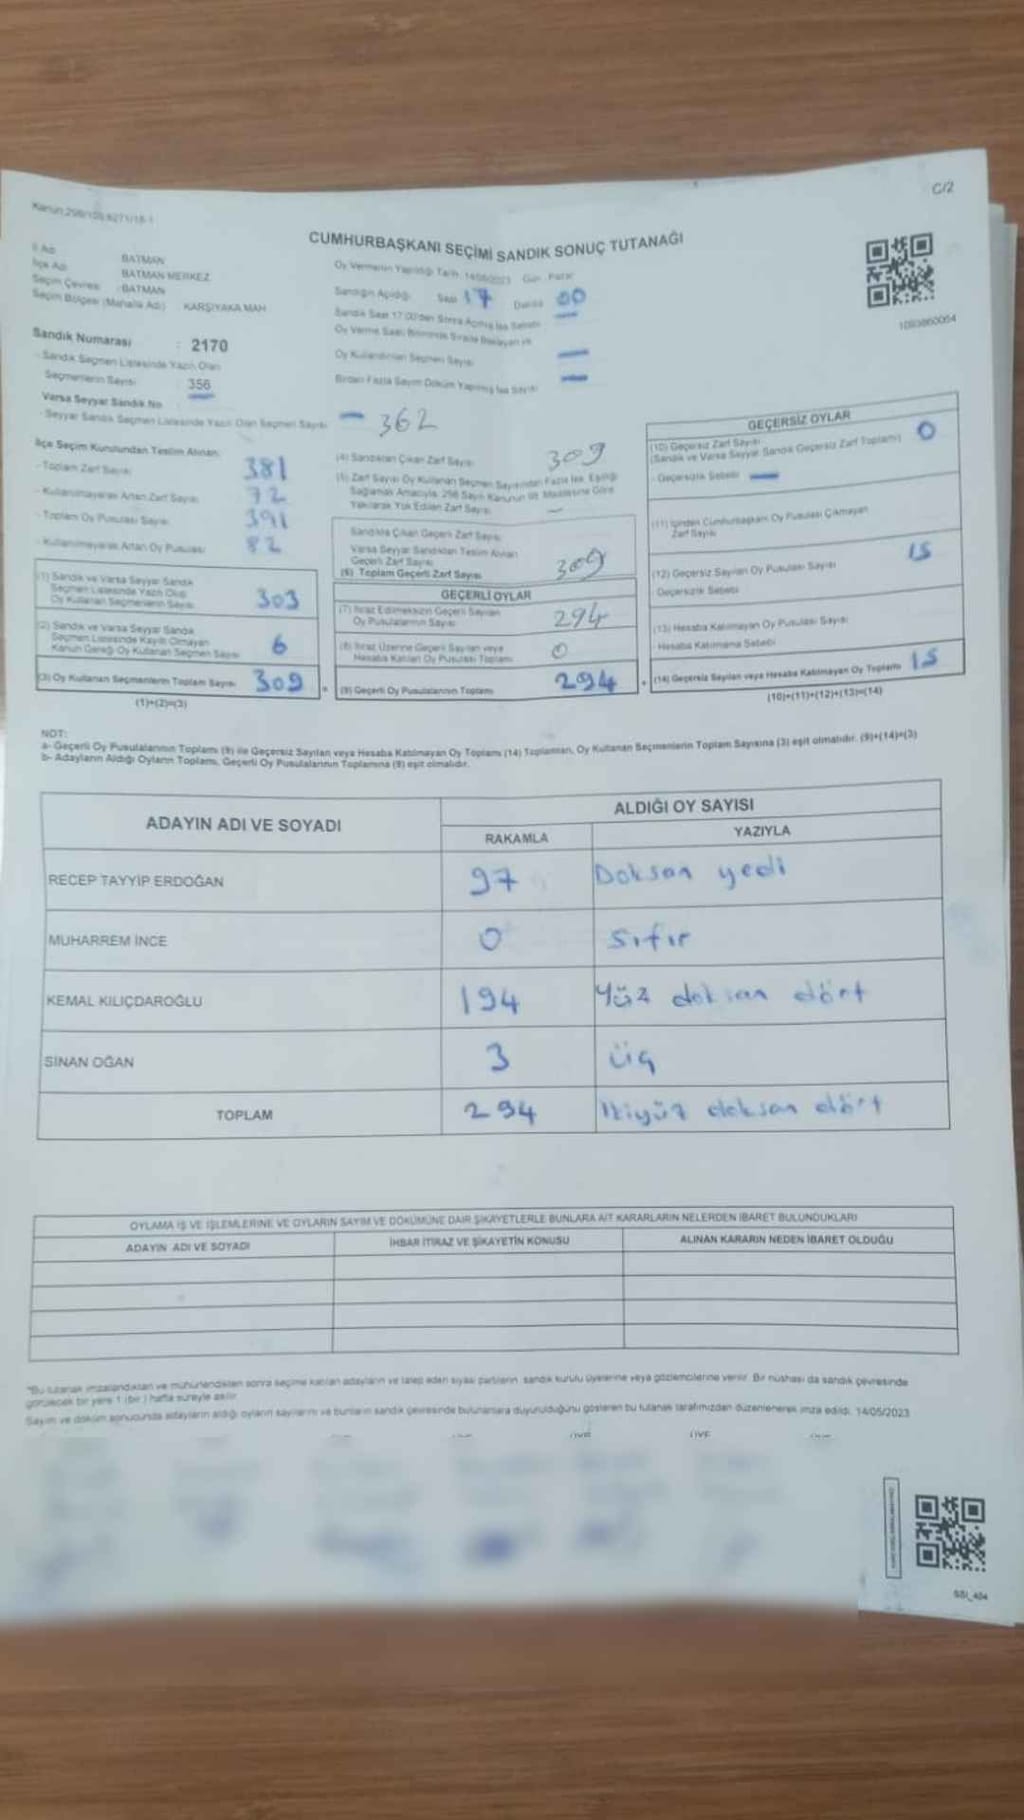 C/2
CUMHURBAŞKANI SEÇİMİ SANDIK SONUÇ TUTANAĞI
İl Adı : BATMAN
İlçe Adı : BATMAN MERKEZ
Seçim Çevresi : BATMAN
Seçim Bölgesi (Mahalle Adı) : KARŞIYAKA MAH
Sandık Numarası : 2170
- Sandık Seçmen Listesinde Yazılı Olan
Seçmenlerin Sayısı : 356
Varsa Seyyar Sandık No
- Seyyar Sandık Seçmen Listesinde Yazılı Olan Seçmen Sayısı - 362
Oy Vermenin Yapıldığı Tarih: 14/05/2023 Gün: Pazar
Sandığın Açıldığı: Saat 17 Dakika 00
Sandık Saat 17:00'den Sonra Açılmış İse Sebebi
Oy Kullandırılan Seçmen Sayısı
Birden Fazla Sayım Döküm Yapılmış İse Sayısı
1093860064
İlçe Seçim Kurulundan Teslim Alınan:
- Toplam Zarf Sayısı 381
- Kullanılmayarak Artan Zarf Sayısı 72
- Toplam Oy Pusulası Sayısı 391
- Kullanılmayarak Artan Oy Pusulası 82
(1) Sandık ve Varsa Seyyar Sandık
Seçmen Listesinde Yazılı Olup
Oy Kullanan Seçmenlerin Sayısı 303
(2) Sandık ve Varsa Seyyar Sandık
Seçmen Listesinde Kayıtlı Olmayan
Kanun Gereği Oy Kullanan Seçmen Sayısı 6
(3) Oy Kullanan Seçmenlerin Toplam Sayısı 309
(1)+(2)=(3)
(4) Sandıktan Çıkan Zarf Sayısı 309
(5) Zarf Sayısı Oy Kullanan Seçmen Sayısından Fazla İse, Eşitliği
Sağlamak Amacıyla, 298 Sayılı Kanunun 98. Maddesine Göre
Yakılarak Yok Edilen Zarf Sayısı -
Sandıkta Çıkan Geçerli Zarf Sayısı
Varsa Seyyar Sandıktan Teslim Alınan
Geçerli Zarf Sayısı
(6) Toplam Geçerli Zarf Sayısı 309
GEÇERLİ OYLAR
(7) İtiraz Edilmeksizin Geçerli Sayılan
Oy Pusulalarının Sayısı 294
(8) İtiraz Üzerine Geçerli Sayılan veya
Hesaba Katılan Oy Pusulası Toplamı 0
(9) Geçerli Oy Pusulalarının Toplamı 294
GEÇERSİZ OYLAR
(10) Geçersiz Zarf Sayısı
(Sandık ve Varsa Seyyar Sandık Geçersiz Zarf Toplamı) 0
- Geçersizlik Sebebi
(11) İçinden Cumhurbaşkanı Oy Pusulası Çıkmayan
Zarf Sayısı
(12) Geçersiz Sayılan Oy Pusulası Sayısı 15
- Geçersizlik Sebebi
(13) Hesaba Katılmayan Oy Pusulası Sayısı
- Hesaba Katılmama Sebebi
(14) Geçersiz Sayılan veya Hesaba Katılmayan Oy Toplamı 15
(10)+(11)+(12)+(13)=(14)
NOT:
a- Geçerli Oy Pusulalarının Toplamı (9) ile Geçersiz Sayılan veya Hesaba Katılmayan Oy Toplamı (14) Toplamları, Oy Kullanan Seçmenlerin Toplam Sayısına (3) eşit olmalıdır. (9)+(14)=(3)
b- Adayların Aldığı Oyların Toplamı, Geçerli Oy Pusulalarının Toplamına (9) eşit olmalıdır.
ADAYIN ADI VE SOYADI
ALDIĞI OY SAYISI
RAKAMLA YAZIYLA
RECEP TAYYİP ERDOĞAN 97 Doksan yedi
MUHARREM İNCE 0 sıfır
KEMAL KILIÇDAROĞLU 194 Yüz doksan dört
SİNAN OĞAN 3 üç
TOPLAM 294 İkiyüz doksan dört
OYLAMA İŞ VE İŞLEMLERİNE VE OYLARIN SAYIM VE DÖKÜMÜNE DAİR ŞİKAYETLERLE BUNLARA AİT KARARLARIN NELERDEN İBARET BULUNDUKLARI
ADAYIN ADI VE SOYADI İHBAR İTİRAZ VE ŞİKAYETİN KONUSU ALINAN KARARIN NEDEN İBARET OLDUĞU
*Bu tutanak imzalandıktan ve mühürlendikten sonra seçime katılan adayların ve talep eden siyasi partilerin sandık kurulu üyelerine veya gözlemcilerine verilir. Bir nüshası da sandık çevresinde
görülecek bir yere 1 (bir) hafta süreyle asılır.
Sayım ve döküm sonucunda adayların aldığı oyların sayılarını ve bunların sandık çevresinde bulunanlara duyurulduğunu gösteren bu tutanak tarafımızdan düzenlenerek imza edildi. 14/05/2023